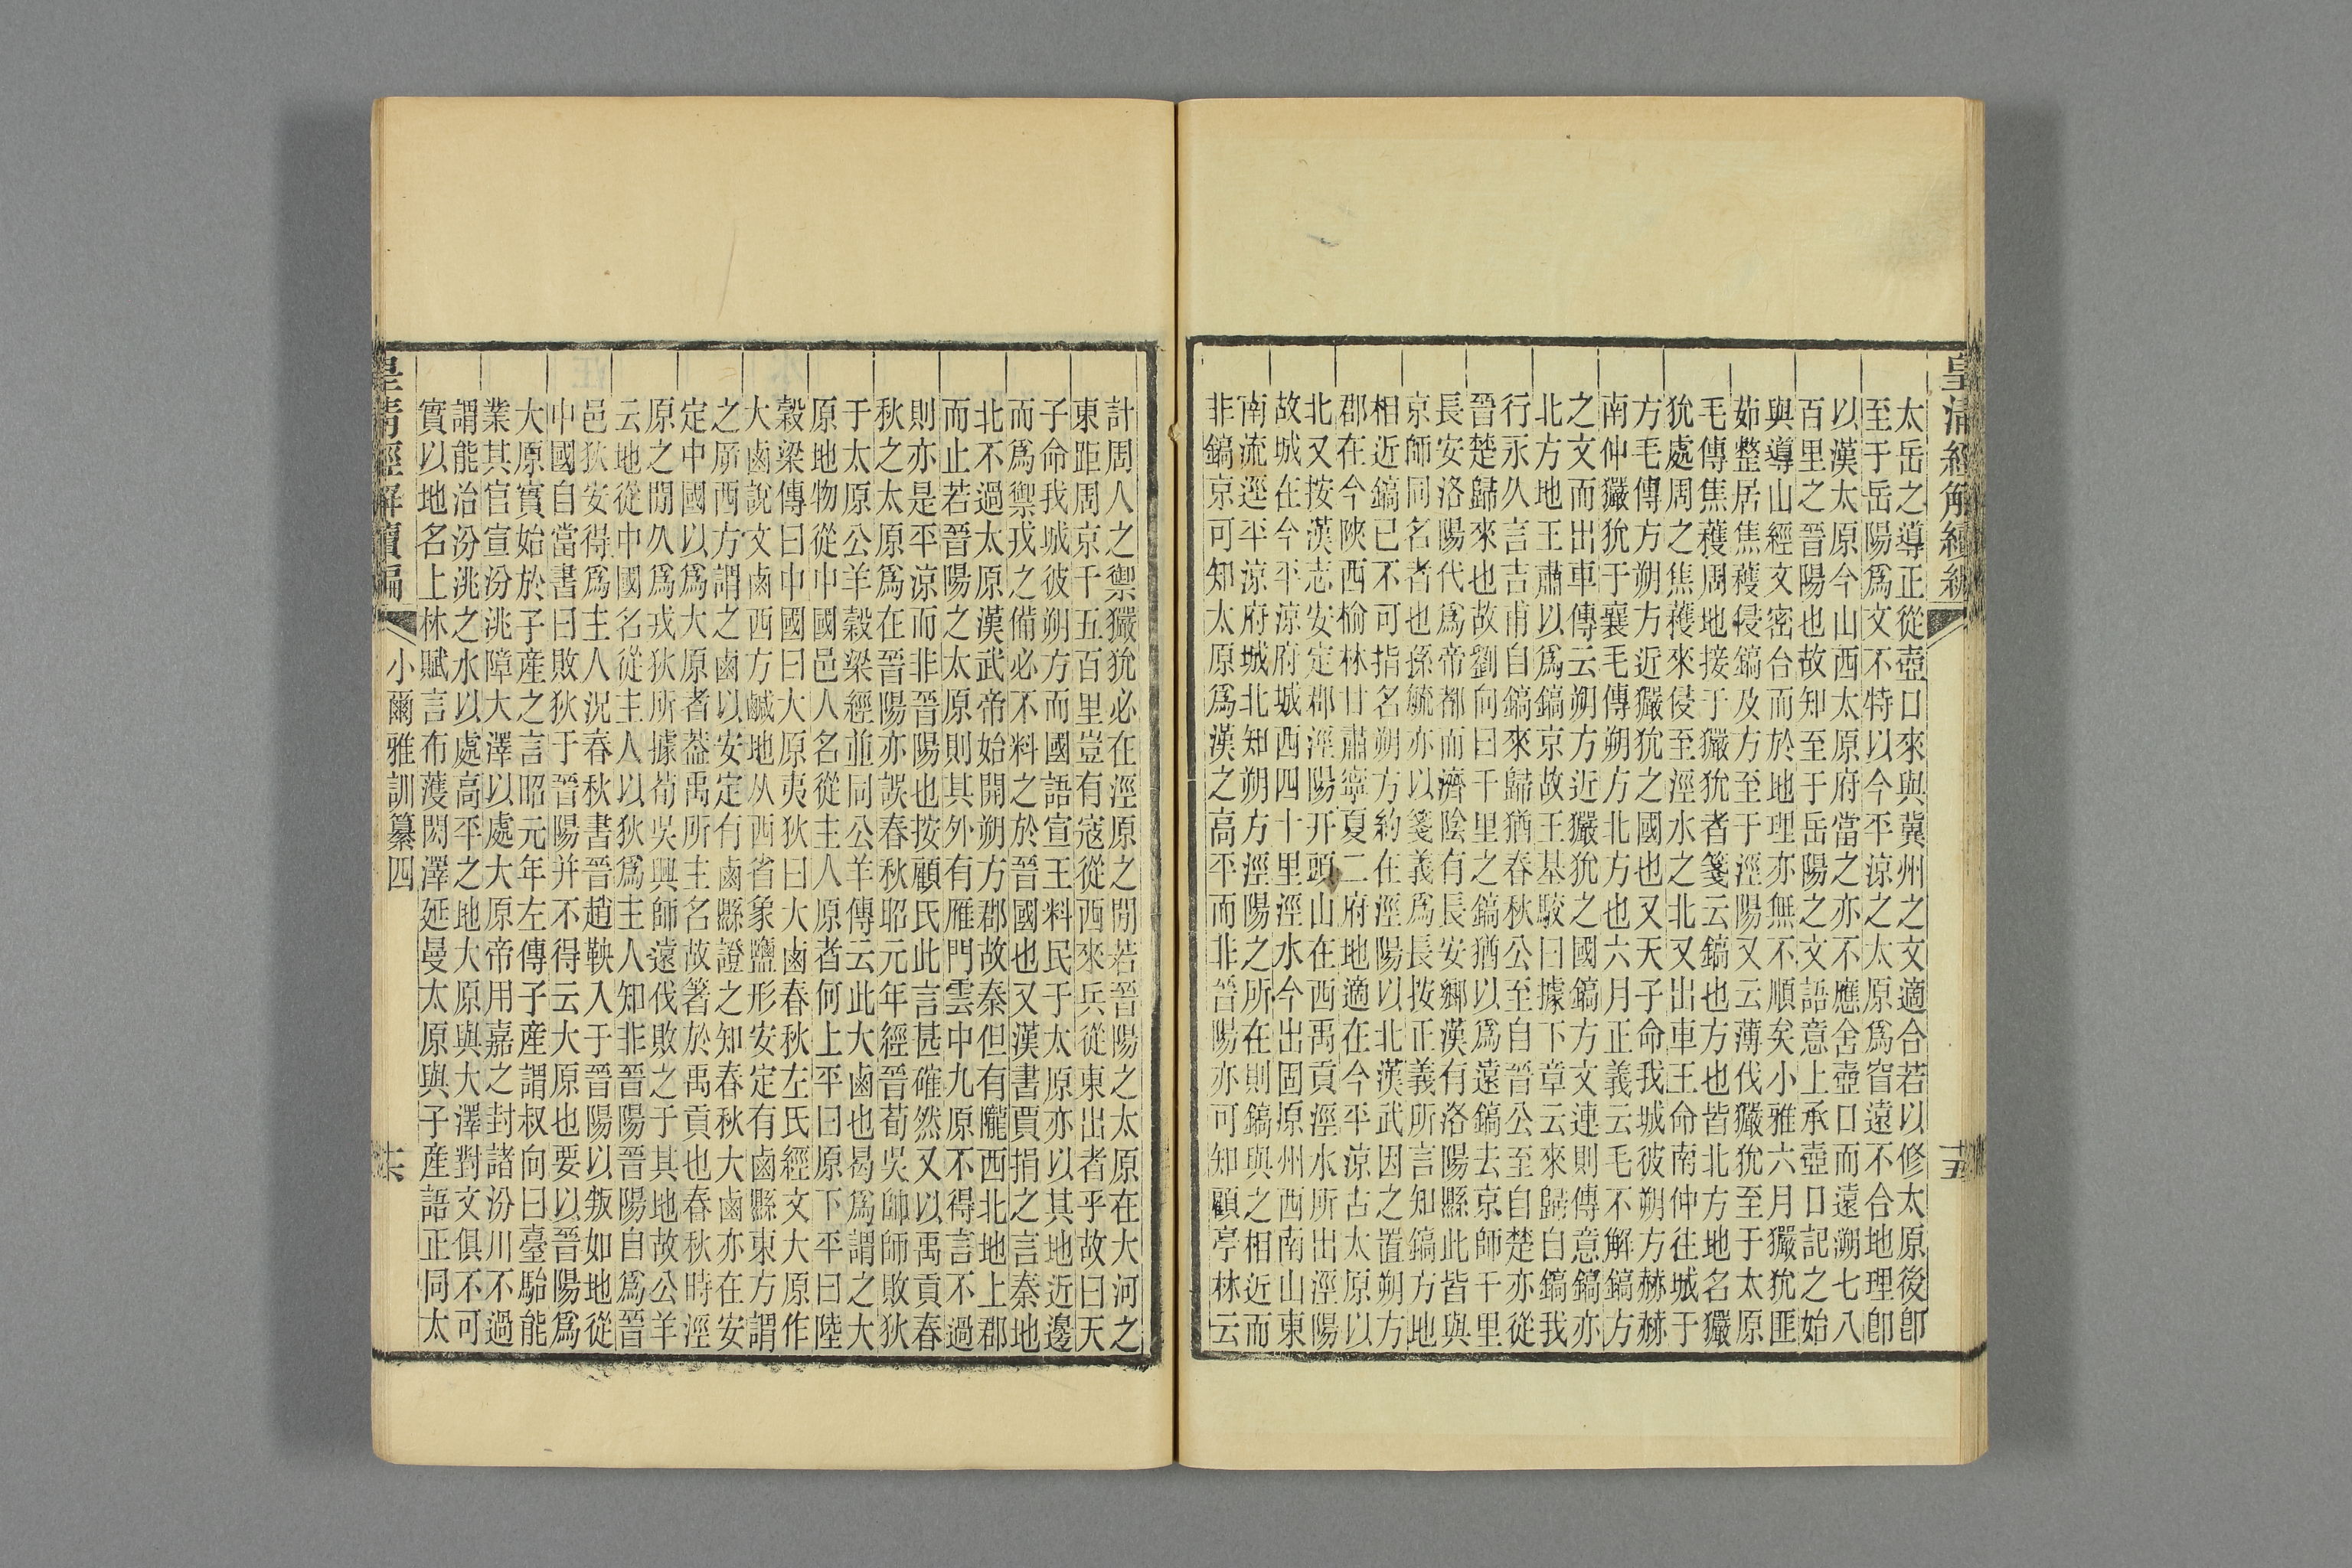 皇清經解續編
十五
太岳之導正從壺口來與冀州之文適合若以修太原後卽
至于岳陽爲文不特以今平涼之太原爲窅遠不合地理卽
以漢太原今山西太原府當之亦不應舍壺口而遠溯七八
百里之晉陽也故知至于岳陽之文語意上承壺口記之始
與導山經文密台而於地理亦無不順矣小雅六月玁狁匪
茹整居焦穫侵鎬及方至于涇陽又云薄伐玁狁至于太原
毛傳焦穫周地接于玁狁者箋云鎬也方也皆北方地名玁
狁處周之焦穫來侵至涇水之北又出車王命南仲往城于
方毛傳方朔方近玁狁之國也又天子命我城彼朔方赫赫
南仲玁狁于襄毛傳朔方北方也六月正義云毛不解鎬方
之文而出車傳云朔方近玁狁之國鎬方文連則傳意鎬亦
北方地王肅以爲鎬京故王基駮曰據下章云來歸自鎬我
行永久言吉甫自鎬來歸猶春秋公至自晉公至自楚亦從
晉楚歸來也故劉向曰千里之鎬猶以爲遠鎬去京師千里
長安洛陽代爲帝都而濟陰有長安鄉漢有洛陽縣此皆與
京師同名者也孫毓亦以箋義爲長按正義所言知鎬方地
相近鎬已不可指名朔方約在涇陽以北漢武因之置朔方
郡在今陝西榆林甘肅寧夏二府地適在今平涼古太原以
北又按漢志安定郡涇陽幵頭山在西禹貢涇水所出涇陽
故城在今平涼府城西四十里涇水今出固原州西南山東
南流逕平涼府城北知朔方涇陽之所在則鎬與之相近而
非鎬京可知太原爲漢之高平而非晉陽亦可知顧亭林云
計周人之禦玁狁必在涇原之閒若晉陽之太原在大河之
東距周京千五百里豈有寇從西來兵從東出者乎故曰天
子命我城彼朔方而國語宣王料民于太原亦以其地近邊
而爲禦戎之備必不料之於晉國也又漢書賈捐之言秦地
北不過太原漢武帝始開朔方郡故秦但有隴西北地上郡
而止若晉陽之太原則其外有雁門雲中九原不得言不過
則亦是平涼而非晉陽也按顧氏此言甚確然又以禹貢春
秋之太原爲在晉陽亦誤春秋昭元年經晉荀吳帥師敗狄
于太原公羊穀梁經並同公羊傳云此大鹵也曷爲謂之大
原地物從中國邑人名從主人原者何上平曰原下平曰陸
穀梁傳曰中國曰大原夷狄曰大鹵春秋左氏經文大原作
大鹵說文鹵西方鹹地从西省象鹽形安定有鹵縣東方謂
之㡿西方謂之鹵以安定有鹵縣證之知春秋大鹵亦在安
定中國以爲大原者葢禹所主名故箸於禹貢也春秋時涇
原之閒久爲戎狄所據荀吳興師遠伐敗之于其地故公羊
云地從中國名從主人以狄爲主人知非晉陽晉陽自爲晉
邑狄安得爲主人況春秋書晉趙鞅入于晉陽以叛如地從
中國自當書曰敗狄于晉陽并不得云大原也要以晉陽爲
大原實始於子產之言昭元年左傳子產謂叔向曰臺駘能
業其官宣汾洮障大澤以處大原帝用嘉之封諸汾川不過
謂能治汾洮之水以處高平之地大原與大澤對文俱不可
實以地名上林賦言布濩閎澤延曼太原與子產語正同太
皇清經解續編
小爾雅訓纂四
十六